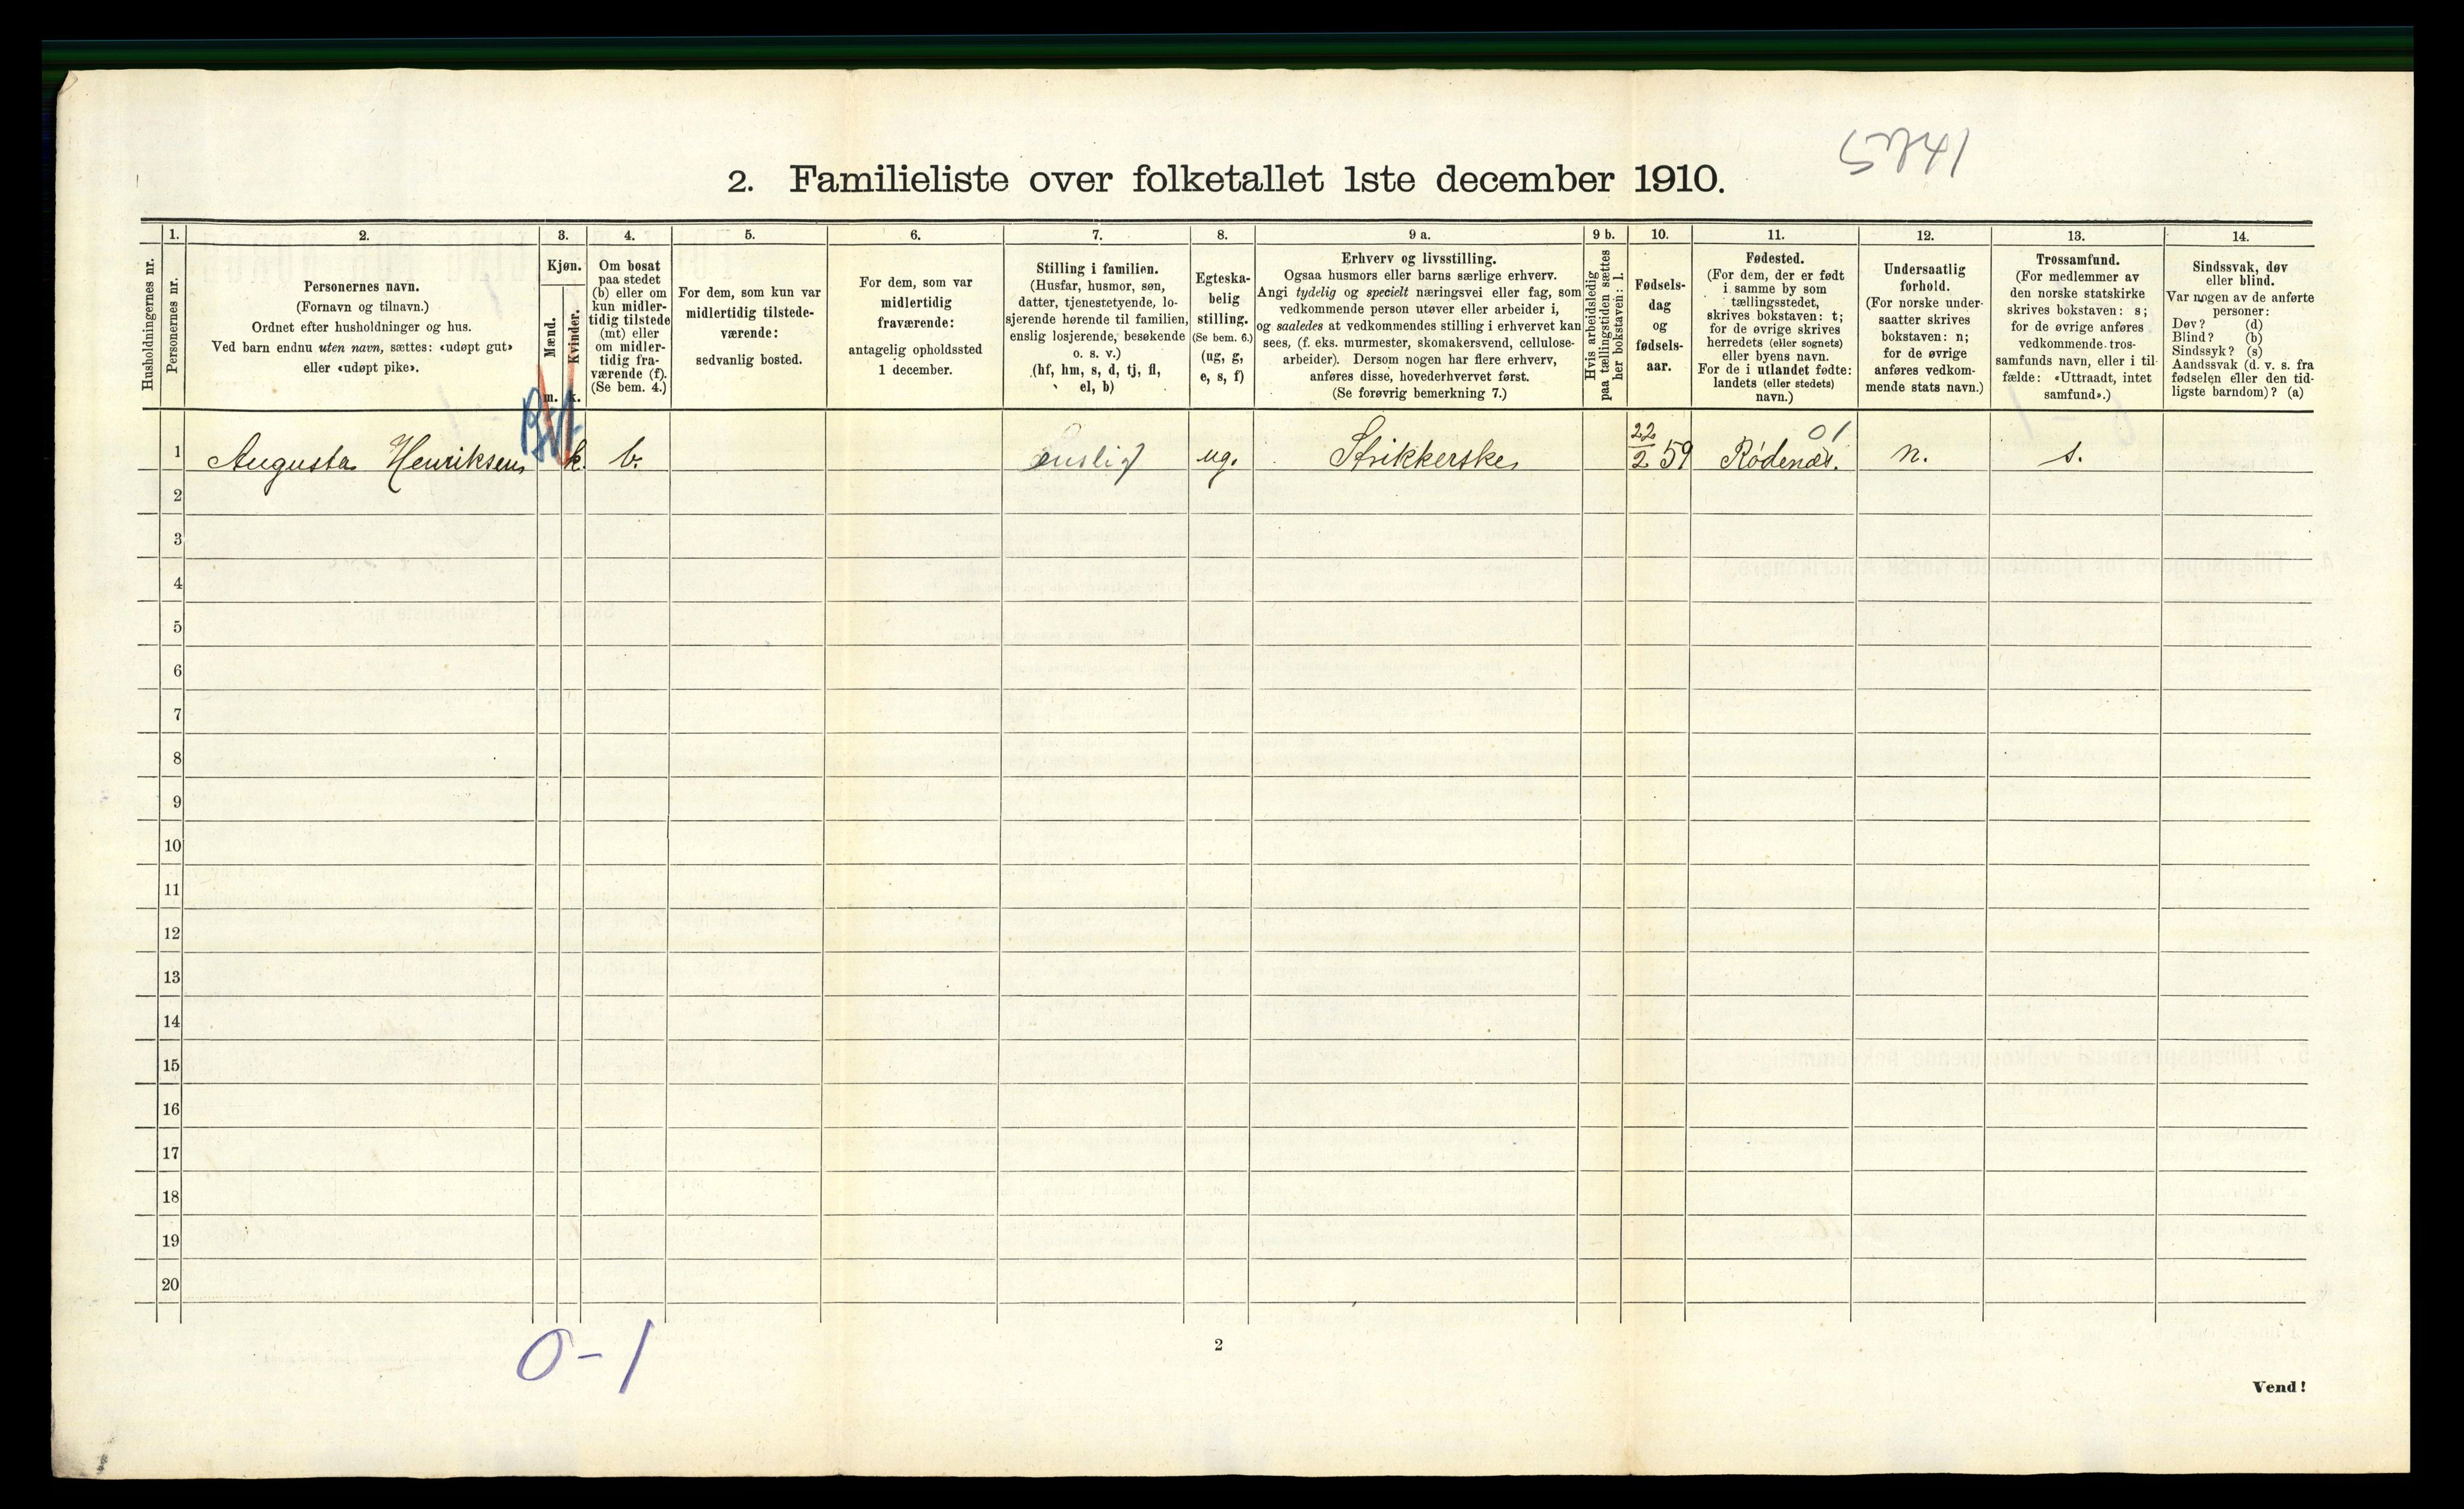 5741
2. Familieliste over folketallet 1ste december 1910.
1. 2. 3. 4. 5. 6. 7. 8. 9 a. 9 b. 10. 11. 12. 13. 14.
Husholdningernes nr.
Personernes nr.
Personernes navn.
(Fornavn og tilnavn.)
Ordnet efter husholdninger og hus.
Ved barn endnu uten navn, sættes: «udøpt gut»
eller «udøpt pike».
Kjøn.
Mænd.
Kvinder.
m. k.
Om bosat
paa stedet
(b) eller om
kun midler-
tidig tilstede
(mt) eller
om midler-
tidig fra-
værende (f).
(Se bem. 4.)
For dem, som kun var
midlertidig tilstede-
værende:
sedvanlig bosted.
For dem, som var
midlertidig
fraværende:
antagelig opholdssted
1 december.
Stilling i familien.
(Husfar, husmor, søn,
datter, tjenestetyende, lo-
sjerende hørende til familien,
enslig losjerende, besøkende
o. s. v.)
(hf, hm, s, d, tj, fl,
el, b)
Egteska-
belig
stilling.
(Se bem. 6.)
(ug, g,
e, s, f)
Erhverv og livsstilling.
Ogsaa husmors eller barns særlige erhverv.
Angi tydelig og specielt næringsvei eller fag, som
vedkommende person utøver eller arbeider i,
og saaledes at vedkommendes stilling i erhvervet kan
sees, (f. eks. murmester, skomakersvend, cellulose-
arbeider). Dersom nogen har flere erhverv,
anføres disse, hovederhvervet først.
(Se forøvrig bemerkning 7.)
Hvis arbeidsledig
paa tællingstiden sættes
her bokstaven: l.
Fødsels-
dag
og
fødsels-
aar.
Fødested.
(For dem, der er født
i samme by som
tællingsstedet,
skrives bokstaven: t;
for de øvrige skrives
herredets (eller sognets)
eller byens navn.
For de i utlandet fødte:
landets (eller stedets)
navn.)
Undersaatlig
forhold.
(For norske under-
saatter skrives
bokstaven: n;
for de øvrige
anføres vedkom-
mende stats navn.)
Trossamfund.
(For medlemmer av
den norske statskirke
skrives bokstaven: s;
for de øvrige anføres
vedkommende tros-
samfunds navn, eller i til-
fælde: «Uttraadt, intet
samfund».)
Sindssvak, døv
eller blind.
Var nogen av de anførte
personer:
Døv? (d)
Blind? (b)
Sindssyk? (s)
Aandssvak (d. v. s. fra
fødselen eller den tid-
ligste barndom)? (a)
1 Augusta Henriksen k. b. enslig ug. Strikkerske 22/2 59 Rødenæs. 01 n. s.
2
3
4
5
6
7
8
9
10
11
12
13
14
15
16
17
18
19
20
0-1
2
Vend!